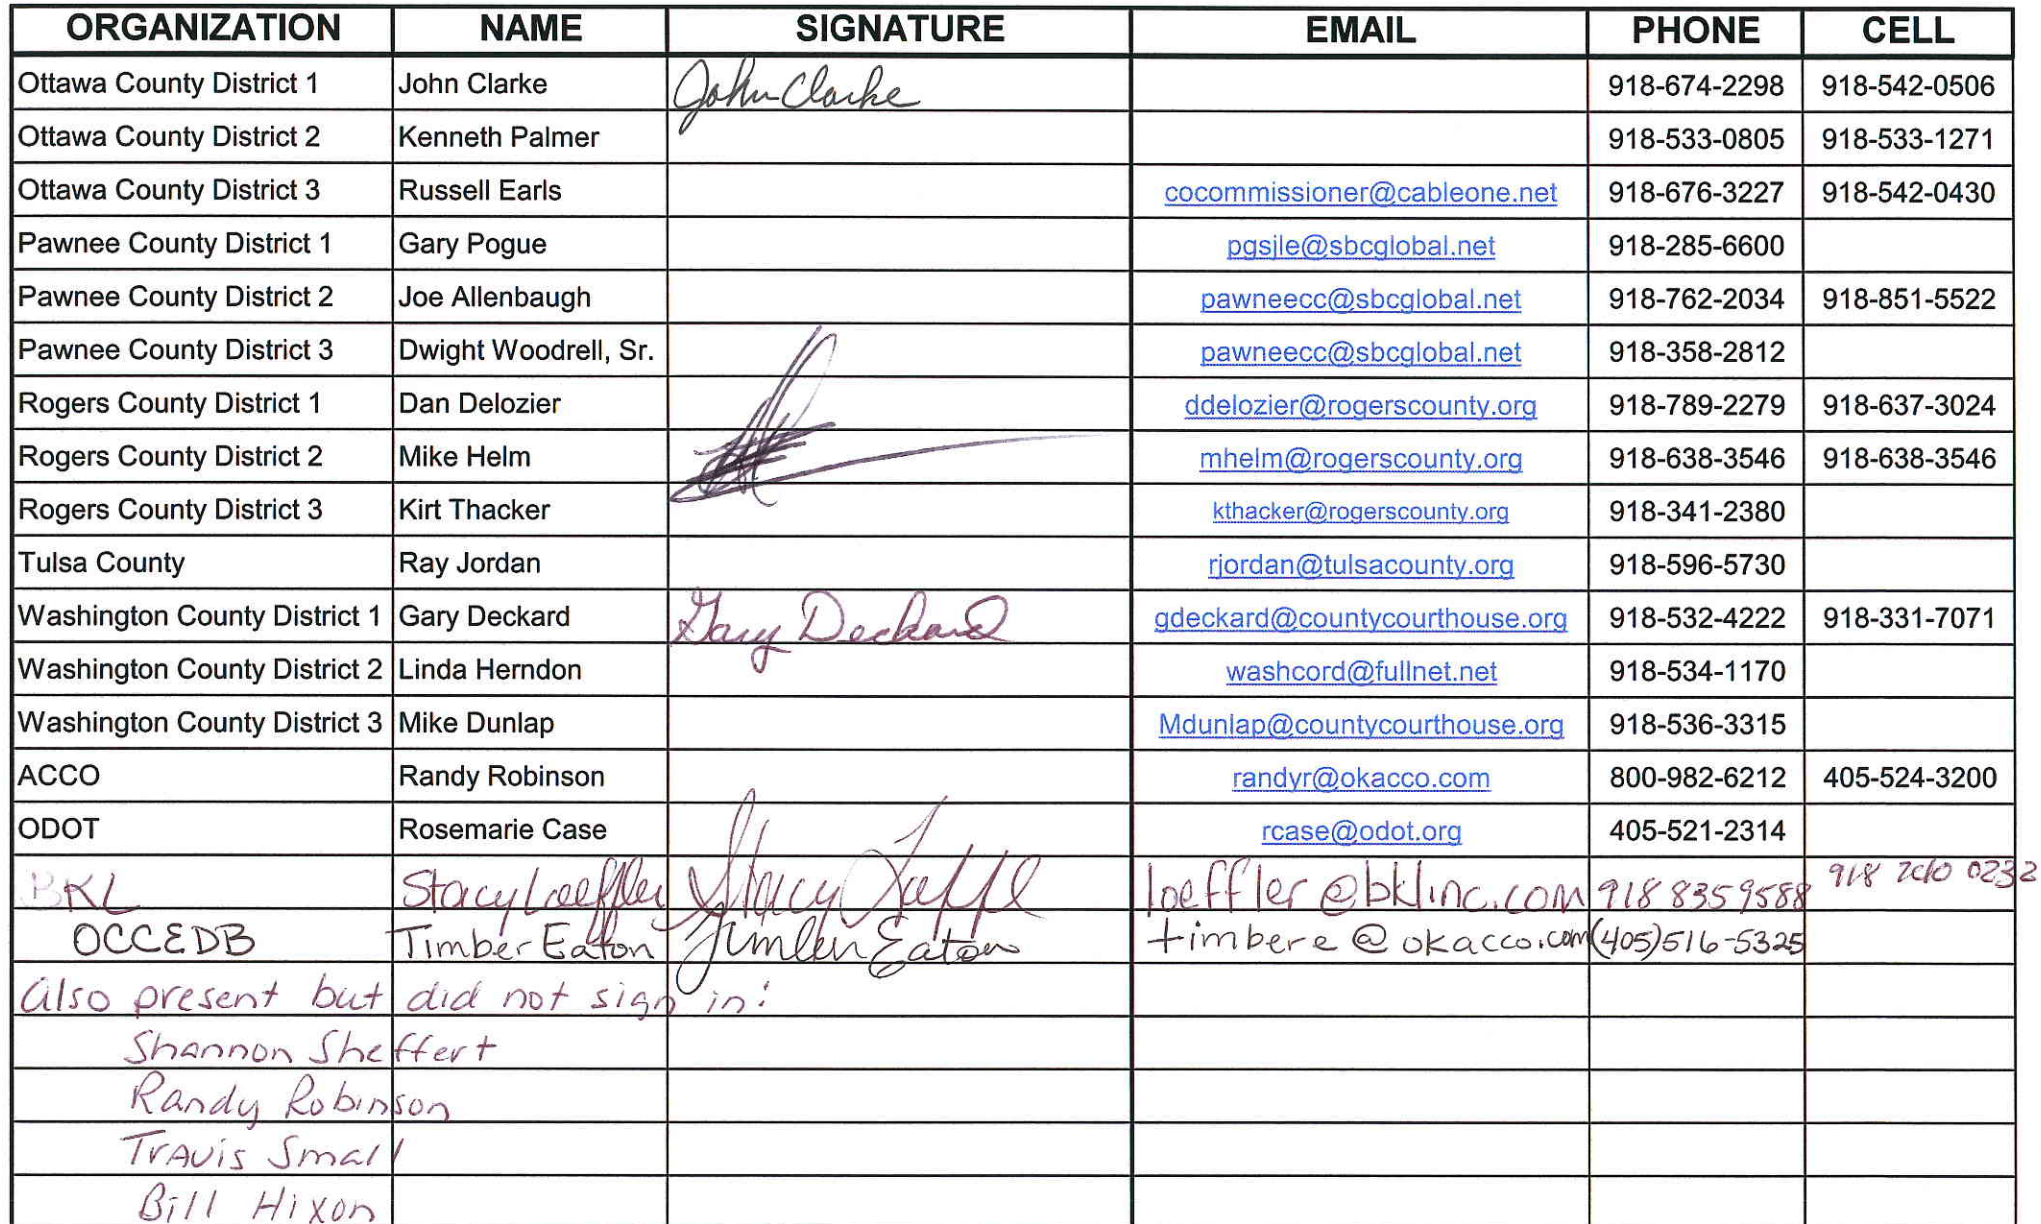 ORGANIZATION NAME SIGNATURE EMAIL PHONE CELL
Ottawa County District 1 John Clarke John Clarke 918-674-2298 918-542-0506
Ottawa County District 2 Kenneth Palmer 918-533-0805 918-533-1271
Ottawa County District 3 Russell Earls cocommissioner@cableone.net 918-676-3227 918-542-0430
Pawnee County District 1 Gary Pogue pgsjle@sbcglobal.net 918-285-6600
Pawnee County District 2 Joe Allenbaugh pawneecc@sbcglobal.net 918-762-2034 918-851-5522
Pawnee County District 3 Dwight Woodrell, Sr. pawneecc@sbcglobal.net 918-358-2812
Rogers County District 1 Dan Delozier ddelozier@rogerscounty.org 918-789-2279 918-637-3024
Rogers County District 2 Mike Helm mhelm@rogerscounty.org 918-638-3546 918-638-3546
Rogers County District 3 Kirt Thacker kthacker@rogerscounty.org 918-341-2380
Tulsa County Ray Jordan rjordan@tulsacounty.org 918-596-5730
Washington County District 1 Gary Deckard Gary Deckard gdeckard@countycourthouse.org 918-532-4222 918-331-7071
Washington County District 2 Linda Herndon washcord@fullnet.net 918-534-1170
Washington County District 3 Mike Dunlap Mdunlap@countycourthouse.org 918-536-3315
ACCO Randy Robinson randyr@okacco.com 800-982-6212 405-524-3200
ODOT Rosemarie Case rcase@odot.org 405-521-2314
BKL Stacy Loeffler Stacy loeffler@bklinc.com 918 835 9588 918
OCCEDB Timber Eaton Timber Eaton timbere@okacco.com (405)516-5325
Also present but did not sign in:
Shannon Sheffert
Randy Robinson
Travis Small
Bill Hixon